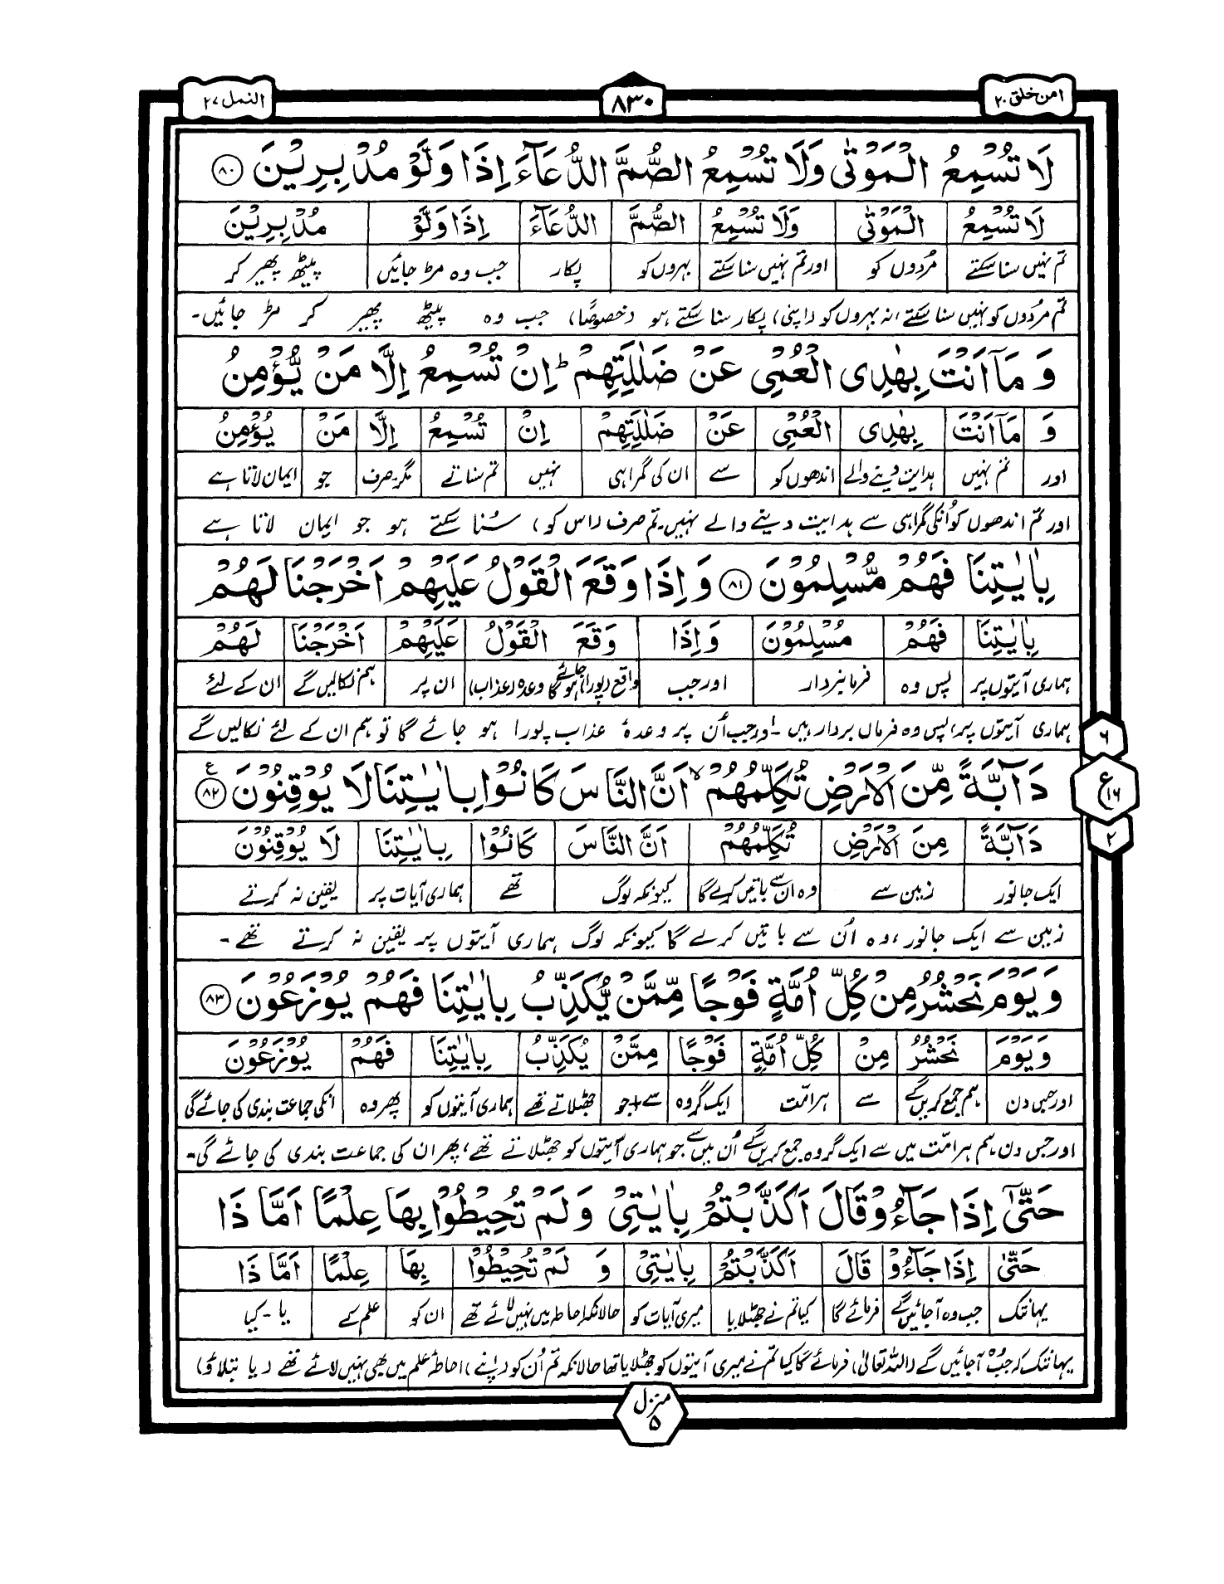 امن خلق ۲۰
۸۳۰
النمل ۲۷
لَا تُسْمِعُ الْمَوْتٰى وَلَا تُسْمِعُ الصُّمَّ الدُّعَآءَ اِذَا وَلَّوْ مُدْبِرِيْنَ ۸۰
لَا تُسْمِعُ الْمَوْتٰى وَلَا تُسْمِعُ الصُّمَّ الدُّعَآءَ اِذَا وَلَّوْ مُدْبِرِيْنَ
تم نہیں سنا سکتے مُردوں کو اور تم نہیں سنا سکتے بہروں کو پکار جب وہ مڑ جائیں پیٹھ پھیر کر
تم مُردوں کو نہیں سنا سکتے، نہ بہروں کو (اپنی) پکار سنا سکتے ہو (خصوصًا) جب وہ پیٹھ پھیر کر مڑ جائیں۔
وَ مَآ اَنْتَ بِهٰدِى الْعُمْىِ عَنْ ضَلٰلَتِهِمْ ؕ اِنْ تُسْمِعُ اِلَّا مَنْ يُّؤْمِنُ
وَ مَآ اَنْتَ بِهٰدِى الْعُمْىِ عَنْ ضَلٰلَتِهِمْ اِنْ تُسْمِعُ اِلَّا مَنْ يُؤْمِنُ
اور تم نہیں ہدایت دینے والے اندھوں کو سے ان کی گمراہی نہیں تم سناتے مگر۔صرف جو ایمان لاتا ہے
اور تم اندھوں کو انکی گمراہی سے ہدایت دینے والے نہیں۔ تم صرف (اس کو) سُنا سکتے ہو جو ایمان لاتا ہے
بِاٰيٰتِنَا فَهُمْ مُّسْلِمُوْنَ ۸۱ وَ اِذَا وَقَعَ الْقَوْلُ عَلَيْهِمْ اَخْرَجْنَا لَهُمْ
بِاٰيٰتِنَا فَهُمْ مُسْلِمُوْنَ وَ اِذَا وَقَعَ الْقَوْلُ عَلَيْهِمْ اَخْرَجْنَا لَهُمْ
ہماری آیتوں پر پس وہ فرمانبردار اور جب واقع (پورا) ہو جائے گا وعدہ (عذاب) ان پر ہم نکالیں گے ان کے لئے
ہماری آیتوں پر، پس وہ فرماں بردار ہیں۔ اور جب اُن پر وعدۂ عذاب پورا ہو جائے گا تو ہم ان کے لئے نکالیں گے
دَآبَّةً مِّنَ الْاَرْضِ تُكَلِّمُهُمْ ۙ اَنَّ النَّاسَ كَانُوْا بِاٰيٰتِنَا لَا يُوْقِنُوْنَ ۸۲ ع
دَآبَّةً مِنَ الْاَرْضِ تُكَلِّمُهُمْ اَنَّ النَّاسَ كَانُوْا بِاٰيٰتِنَا لَا يُوْقِنُوْنَ
ایک جانور زمین سے وہ ان سے باتیں کریگا کیونکہ لوگ تھے ہماری آیات پر یقین نہ کرتے
زمین سے ایک جانور، وہ اُن سے باتیں کرے گا کیونکہ لوگ ہماری آیتوں پر یقین نہ کرتے تھے۔
۶
ع ۱۶
۲
وَ يَوْمَ نَحْشُرُ مِنْ كُلِّ اُمَّةٍ فَوْجًا مِّمَّنْ يُّكَذِّبُ بِاٰيٰتِنَا فَهُمْ يُوْزَعُوْنَ ۸۳
وَ يَوْمَ نَحْشُرُ مِنْ كُلِّ اُمَّةٍ فَوْجًا مِمَّنْ يُكَذِّبُ بِاٰيٰتِنَا فَهُمْ يُوْزَعُوْنَ
اور جس دن ہم جمع کریں گے سے ہر امّت ایک گروہ سے+جو جھٹلاتے تھے ہماری آیتوں کو پھر وہ انکی جماعت بندی کی جائے گی
اور جس دن ہم ہر امّت میں سے ایک گروہ جمع کریں گے اُن میں سے جو ہماری آیتوں کو جھٹلاتے تھے، پھر ان کی جماعت بندی کی جائے گی۔
حَتّٰىٓ اِذَا جَآءُوْ قَالَ اَكَذَّبْتُمْ بِاٰيٰتِىْ وَ لَمْ تُحِيْطُوْا بِهَا عِلْمًا اَمَّا ذَا
حَتّٰى اِذَا جَآءُوْ قَالَ اَكَذَّبْتُمْ بِاٰيٰتِىْ وَ لَمْ تُحِيْطُوْا بِهَا عِلْمًا اَمَّا ذَا
یہانتک جب وہ آجائیں گے فرمائے گا کیا تم نے جھٹلایا میری آیات کو حالانکہ احاطہ میں نہیں لائے تھے ان کو علم کے یا۔کیا
یہانتک کہ جب آجائیں گے (اللہ تعالیٰ) فرمائے گا کیا تم نے میری آیتوں کو جھٹلایا تھا حالانکہ تم اُن کو (اپنے) احاطۂ علم میں بھی نہیں لائے تھے (یا بتلاؤ)
منزل ۵